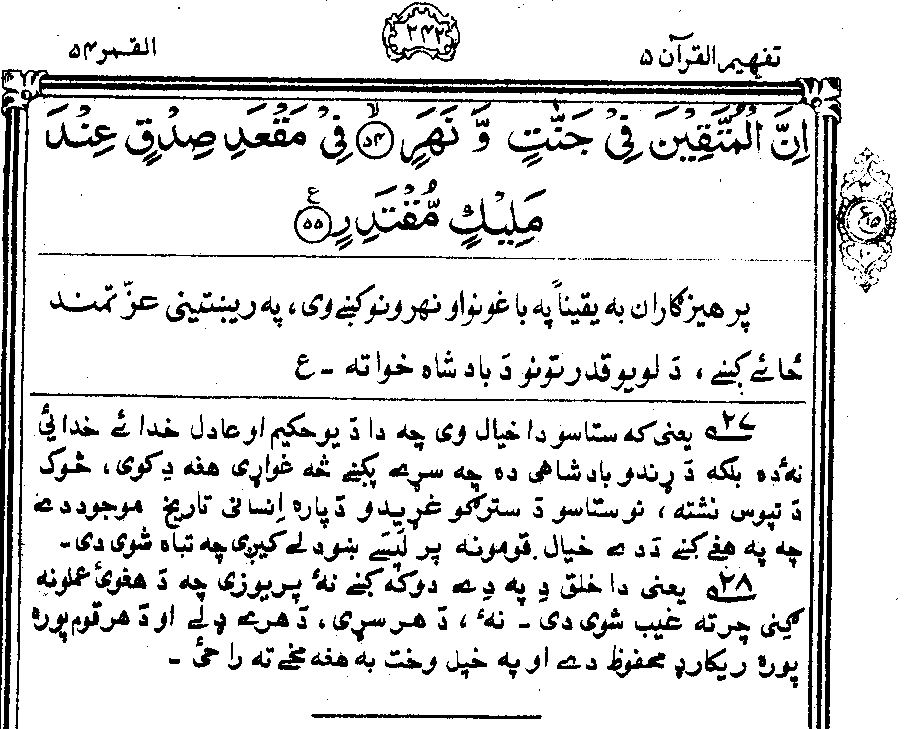 تفهيم القرآن ۵
۲۴۲
القمر ۵۴
اِنَّ الْمُتَّقِيْنَ فِيْ جَنّٰتٍ وَّ نَهَرٍ ﴿۵۴﴾ فِيْ مَقْعَدِ صِدْقٍ عِنْدَ
مَلِيْكٍ مُّقْتَدِرٍ ﴿۵۵﴾ ع
پرهیزګاران به یقیناً په باغونو او نهرونو کښے وی، په ریښتینی عزّتمند
ځائے کښے، دَ لویو قدرتونو دَ بادشاه خوا ته ـ ع
۲۷ یعنی که ستاسو دا خیال وی چه دا دَ یو حکیم او عادل خدائے خدائیُ
نهٔ ده بلکه دَ ړندو بادشاهی ده چه سړے پکښے څه غواړی هغه دِ کوی، څوک
دَ تپوس نشته، نو ستاسو دَ سترګو غړیدو دَ پاره اِنسانی تاریخ موجود دے
چه په هغے کښے دَ دے خیال قومونه پرلپسے ښودلے کیږی چه تباه شوی دی ـ
۲۸ یعنی دا خلق دِ په دِے دوکه کښے نهٔ پریوزی چه دَ هغوئ عملونه
ګنی چرته غیب شوی دی ـ نهٔ، دَ هر سړی، دَ هرے ډلے او دَ هر قوم پوره
پوره ریکارډ محفوظ دے او په خپل وخت به هغه مخے ته راځئ ـ